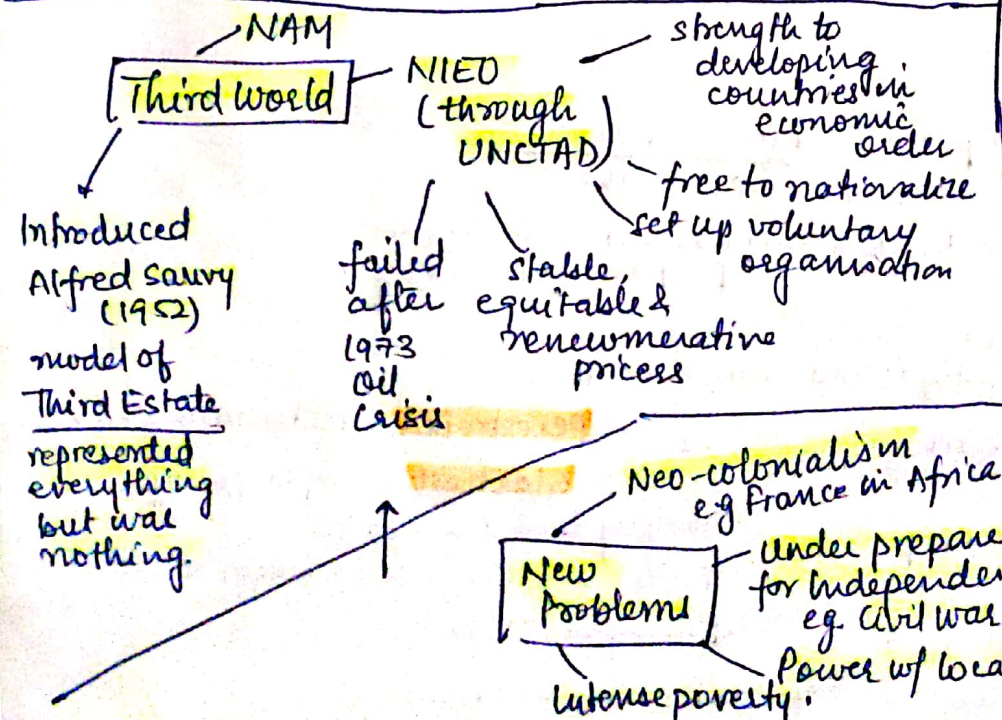 NAM
Third World
NIEO
(through
UNCTAD)
strength to
developing
countries in
economic
order
free to nationalize
set up voluntary
organisation
Introduced
Alfred Sauvy
(1952)
model of
Third Estate
represented
everything
but was
nothing.
failed
after
1973
Oil
Crisis
stable,
equitable &
renewmerative
pricess
Neo-colonialism
e.g France in Africa
New
Problems
Under prepare
for Independen
eg. Civil war
Power w/ loca
Intense poverty.